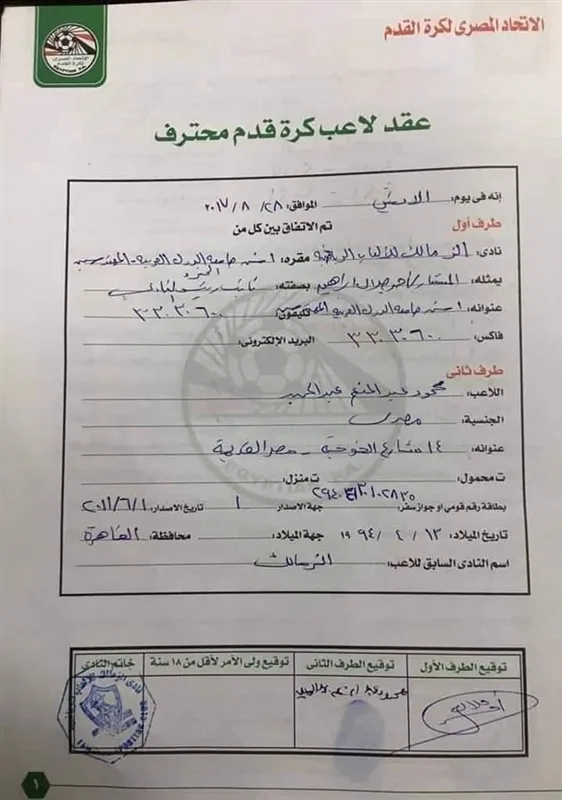 الاتحاد المصرى لكرة القدم
عقد لاعب كرة قدم محترف
إنه فى يوم: الاثنين الموافق: ٢٨/ ٨ / ٢٠١٧
تم الاتفاق بين كل من
طرف أول
نادى: الزمالك للألعاب الرياضية مقره: ١ ش جامعة الدول العربية - المهندسين
يمثله: المستشار/ أحمد جلال ابراهيم بصفته: نائب رئيس
عنوانه: ١ ش جامعة الدول العربية المهندسين تليفون: ٣٣٠٣٠٦٠٠
فاكس: ٣٣٠٣٠٦٠٠ البريد الإلكترونى:
طرف ثانى
اللاعب: محمود عبد المنعم عبد الحميد
الجنسية: مصرى
عنوانه: ١٤ شارع الخوخة - مصر القديمة
ت محمول: ت منزل:
بطاقة رقم قومى او جواز سفر: جهة الاصدار ١ تاريخ الاصدار: ٢٠١١/٦/١
تاريخ الميلاد: ١٣ / ٤ / ١٩٩٤ جهة الميلاد: محافظة: القاهرة
اسم النادى السابق للاعب: الزمالك
توقيع الطرف الأول توقيع الطرف الثانى توقيع ولى الأمر لأقل من ١٨ سنة خاتم النادى
محمود عبد المنعم عبد الحميد
١